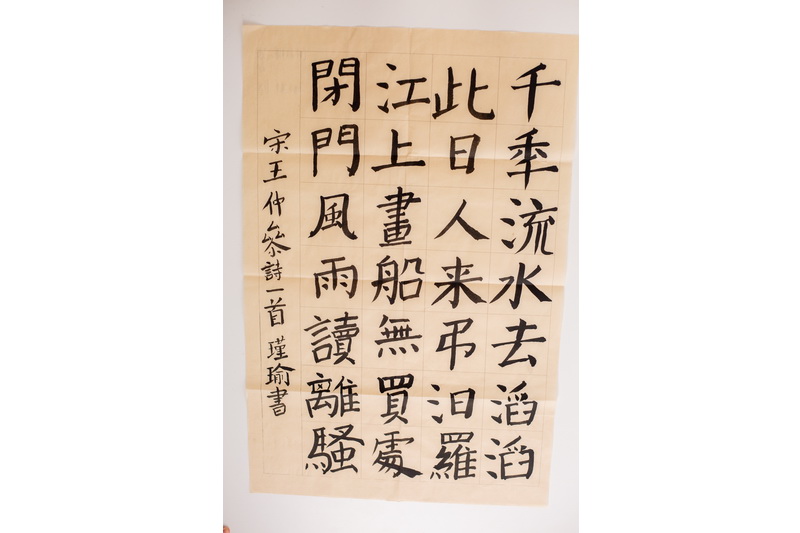 千年流水去滔滔
此日人来弔汨羅
江上畫船無買處
閉門風雨讀離騷
宋王仲參詩一首 瑾瑜書